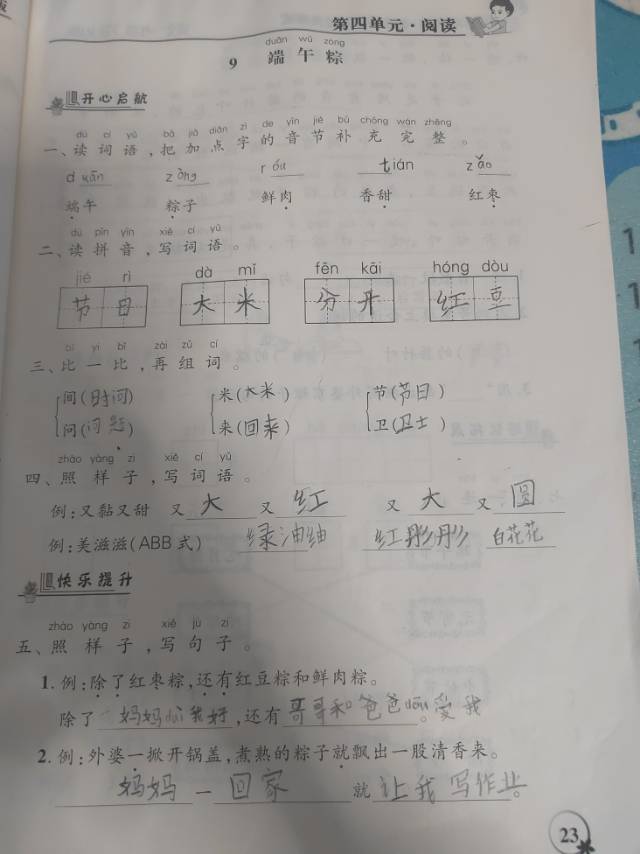 第四单元·阅读
duān wǔ zòng
9 端午粽
开心启航
dú cí yǔ bǎ jiā diǎn zì de yīn jié bǔ chōng wán zhěng
一、读词语,把加点字的音节补充完整。
d uān z òng r óu tián z ǎo
端午 粽子 鲜肉 香甜 红枣
dú pīn yīn xiě cí yǔ
二、读拼音,写词语。
jié rì dà mǐ fēn kāi hóng dòu
节日 大米 分开 红豆
bǐ yi bǐ zài zǔ cí
三、比一比,再组词。
间(时间) 米(大米) 节(节日)
问(问题) 来(回来) 卫(卫士)
zhào yàng zi xiě cí yǔ
四、照样子,写词语。
例:又黏又甜 又大又红 又大又圆
例:美滋滋(ABB式) 绿油油 红彤彤 白花花
快乐提升
zhào yàng zi xiě jù zi
五、照样子,写句子。
1. 例:除了红枣粽,还有红豆粽和鲜肉粽。
除了妈妈duì我好,还有哥哥和爸爸dōu爱我。
2. 例:外婆一掀开锅盖,煮熟的粽子就飘出一股清香来。
妈妈一回家就让我写作业。
23